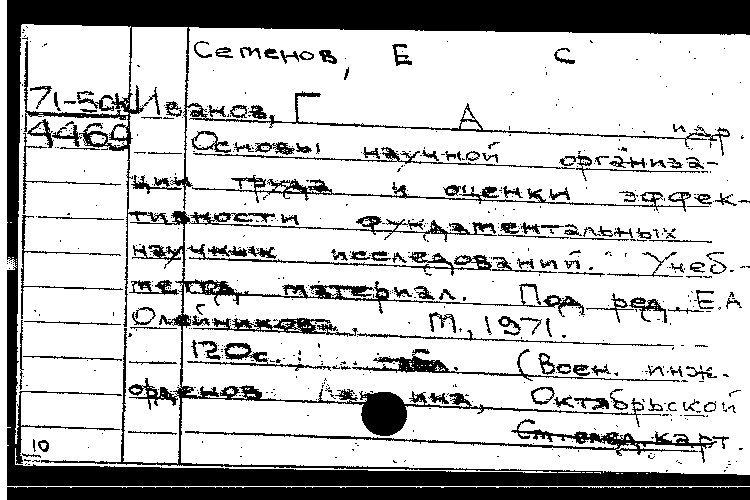 Семенов, Е С
71-5ок Иванов, Г А идр.
4469 Основы научной организа-
ции труда и оценки эффек-
тивности фундаментальных
научных исследований. Учеб.-
метод. материал. Под ред. Е.А
Олейникова. М., 1971.
120с. табл. (Воен. инж.
орденов Ленина, Октябрьской
См. след. карт.
10